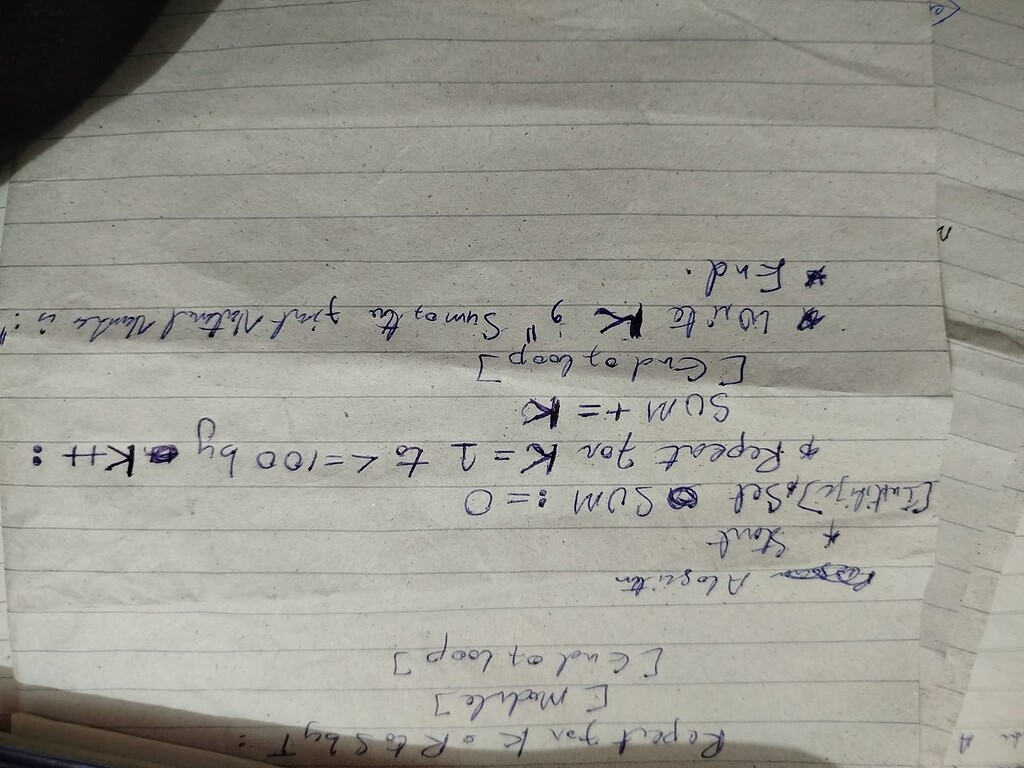 Repeat for K = R to S by T :
[ Module ]
[ End of loop ]
Alogoritm
* Start
[Initilize] * Set SUM := 0
* Repeat for K = 1 to <=100 by K++ :
SUM += K
[ End of loop ]
* Write K , " Sum of the first Natural Number is : "
* End .